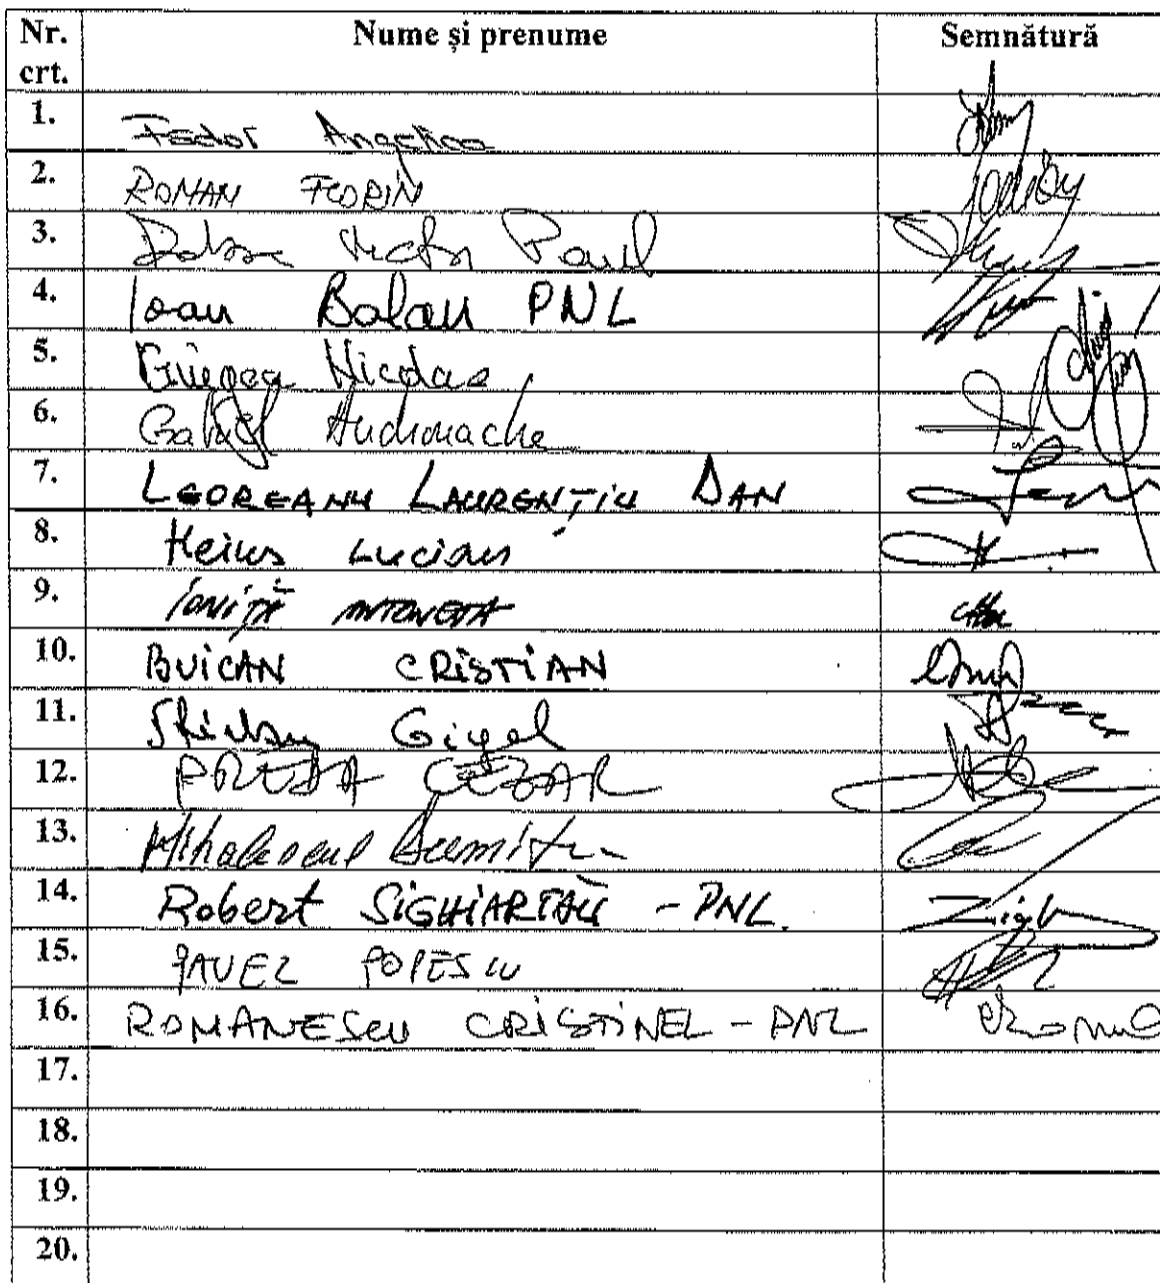 Nr. crt. Nume și prenume Semnătură
1. Fedor Angelica
2. ROMAN FLORIN
3. Paul
4. Ioan Balan PNL
5. Giugea Nicolae
6. Gabriel Andronache
7. LEOREANU LAURENȚIU DAN
8. Heius Lucian
9. IONIȚĂ ANTONETA
10. BUICAN CRISTIAN
11. Știrbu Gigel
12. PREDA CEZAR
13. Mihalescul Dumitru
14. Robert SIGHIARTĂU - PNL
15. PAVEL POPESCU
16. ROMANESCU CRISTINEL - PNL
17.
18.
19.
20.